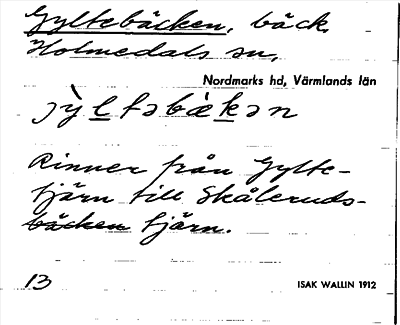 Gyltebäcken, bäck,
Holmedals sn,
Nordmarks hd, Värmlands län
jỳltəbæ̀kən
Rinner från Gylte-
tjärn till Skåleruds-
bäcken tjärn.
13
ISAK WALLIN 1912